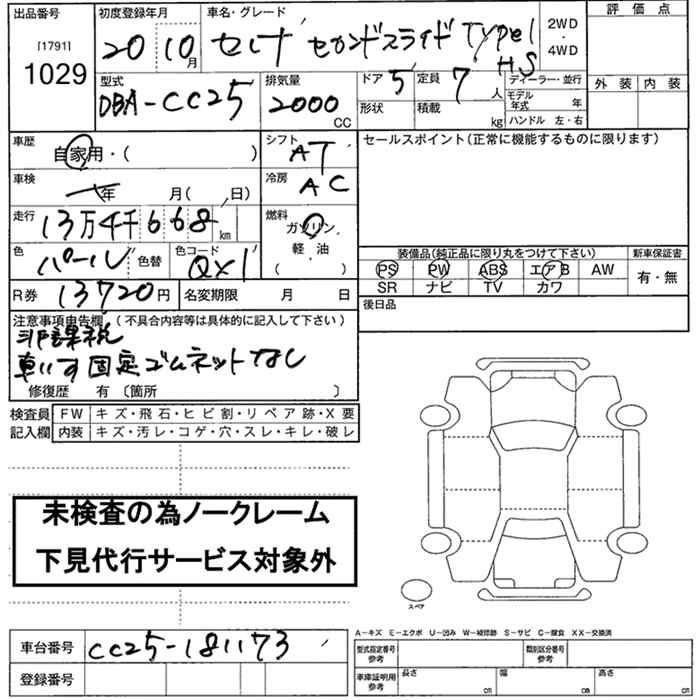 出品番号 初度登録年月 車名・グレード 評価点
[1791]
1029
20 10月 セレナ セカンドスライド TYPE1 HS
2WD・4WD
型式 排気量 ドア 5 定員 7人 ディーラー・並行 外装 内装
DBA-CC25 2000CC 形状 積載 kg モデル年式 年
ハンドル 左・右
車歴 自家用・( ) シフト AT セールスポイント(正常に機能するものに限ります)
車検 年 月( 、日) 冷房 AC
走行 13万4千668km 燃料 ガソリン・
軽・油
( )
色 パール 色替 色コード QX1 装備品(純正品に限り丸をつけて下さい) 新車保証書
PS PW ABS エアB AW 有・無
SR ナビ TV カワ
R券 13720円 名変期限 月 日 後日品
注意事項申告欄 (不具合内容等は具体的に記入して下さい)
非課税
車いす固定ゴムネットなし
修復歴 有〔箇所 〕
検査員 FW キズ・飛石・ヒビ割・リペア跡・X要
記入欄 内装 キズ・汚レ・コゲ・穴・スレ・キレ・破レ
未検査の為ノークレーム
下見代行サービス対象外
スペア
A-キズ E-エクボ U-凹み W-補修跡 S-サビ C-腐食 XX-交換済
車台番号 CC25-181173 型式指定番号 参考 類別区分番号 参考
登録番号 車庫証明用 参考 長さ cm 幅 cm 高さ cm